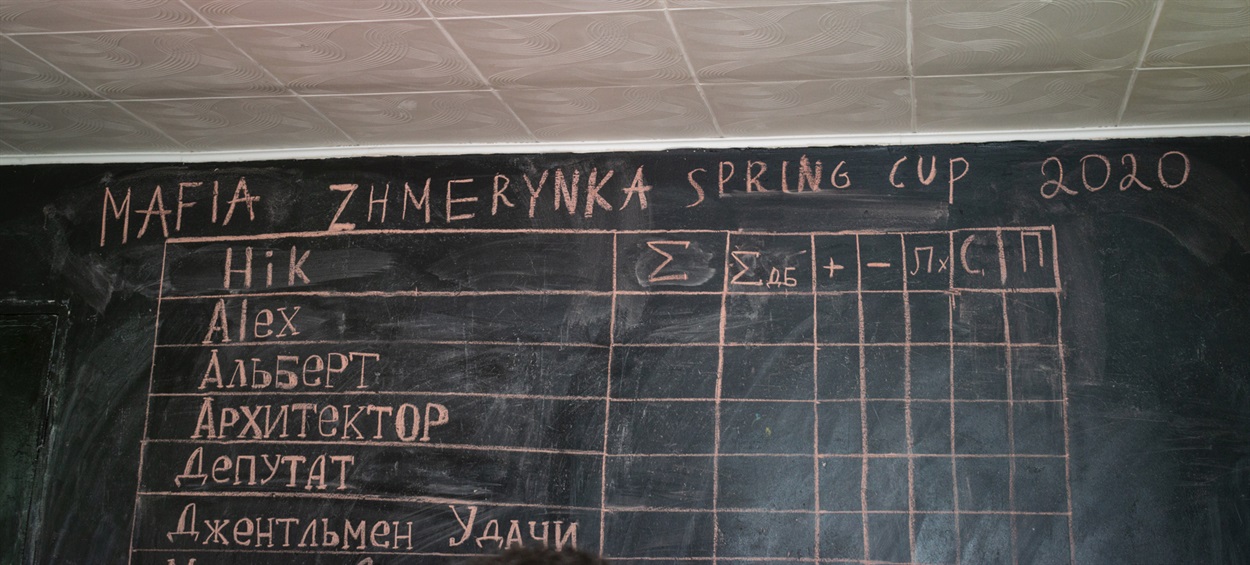 MAFIA ZHMERYNKA SPRING CUP 2020
Нік Σ Σ ДБ + - Лх С П
Alex
Альберт
Архитектор
Депутат
Джентльмен Удачи